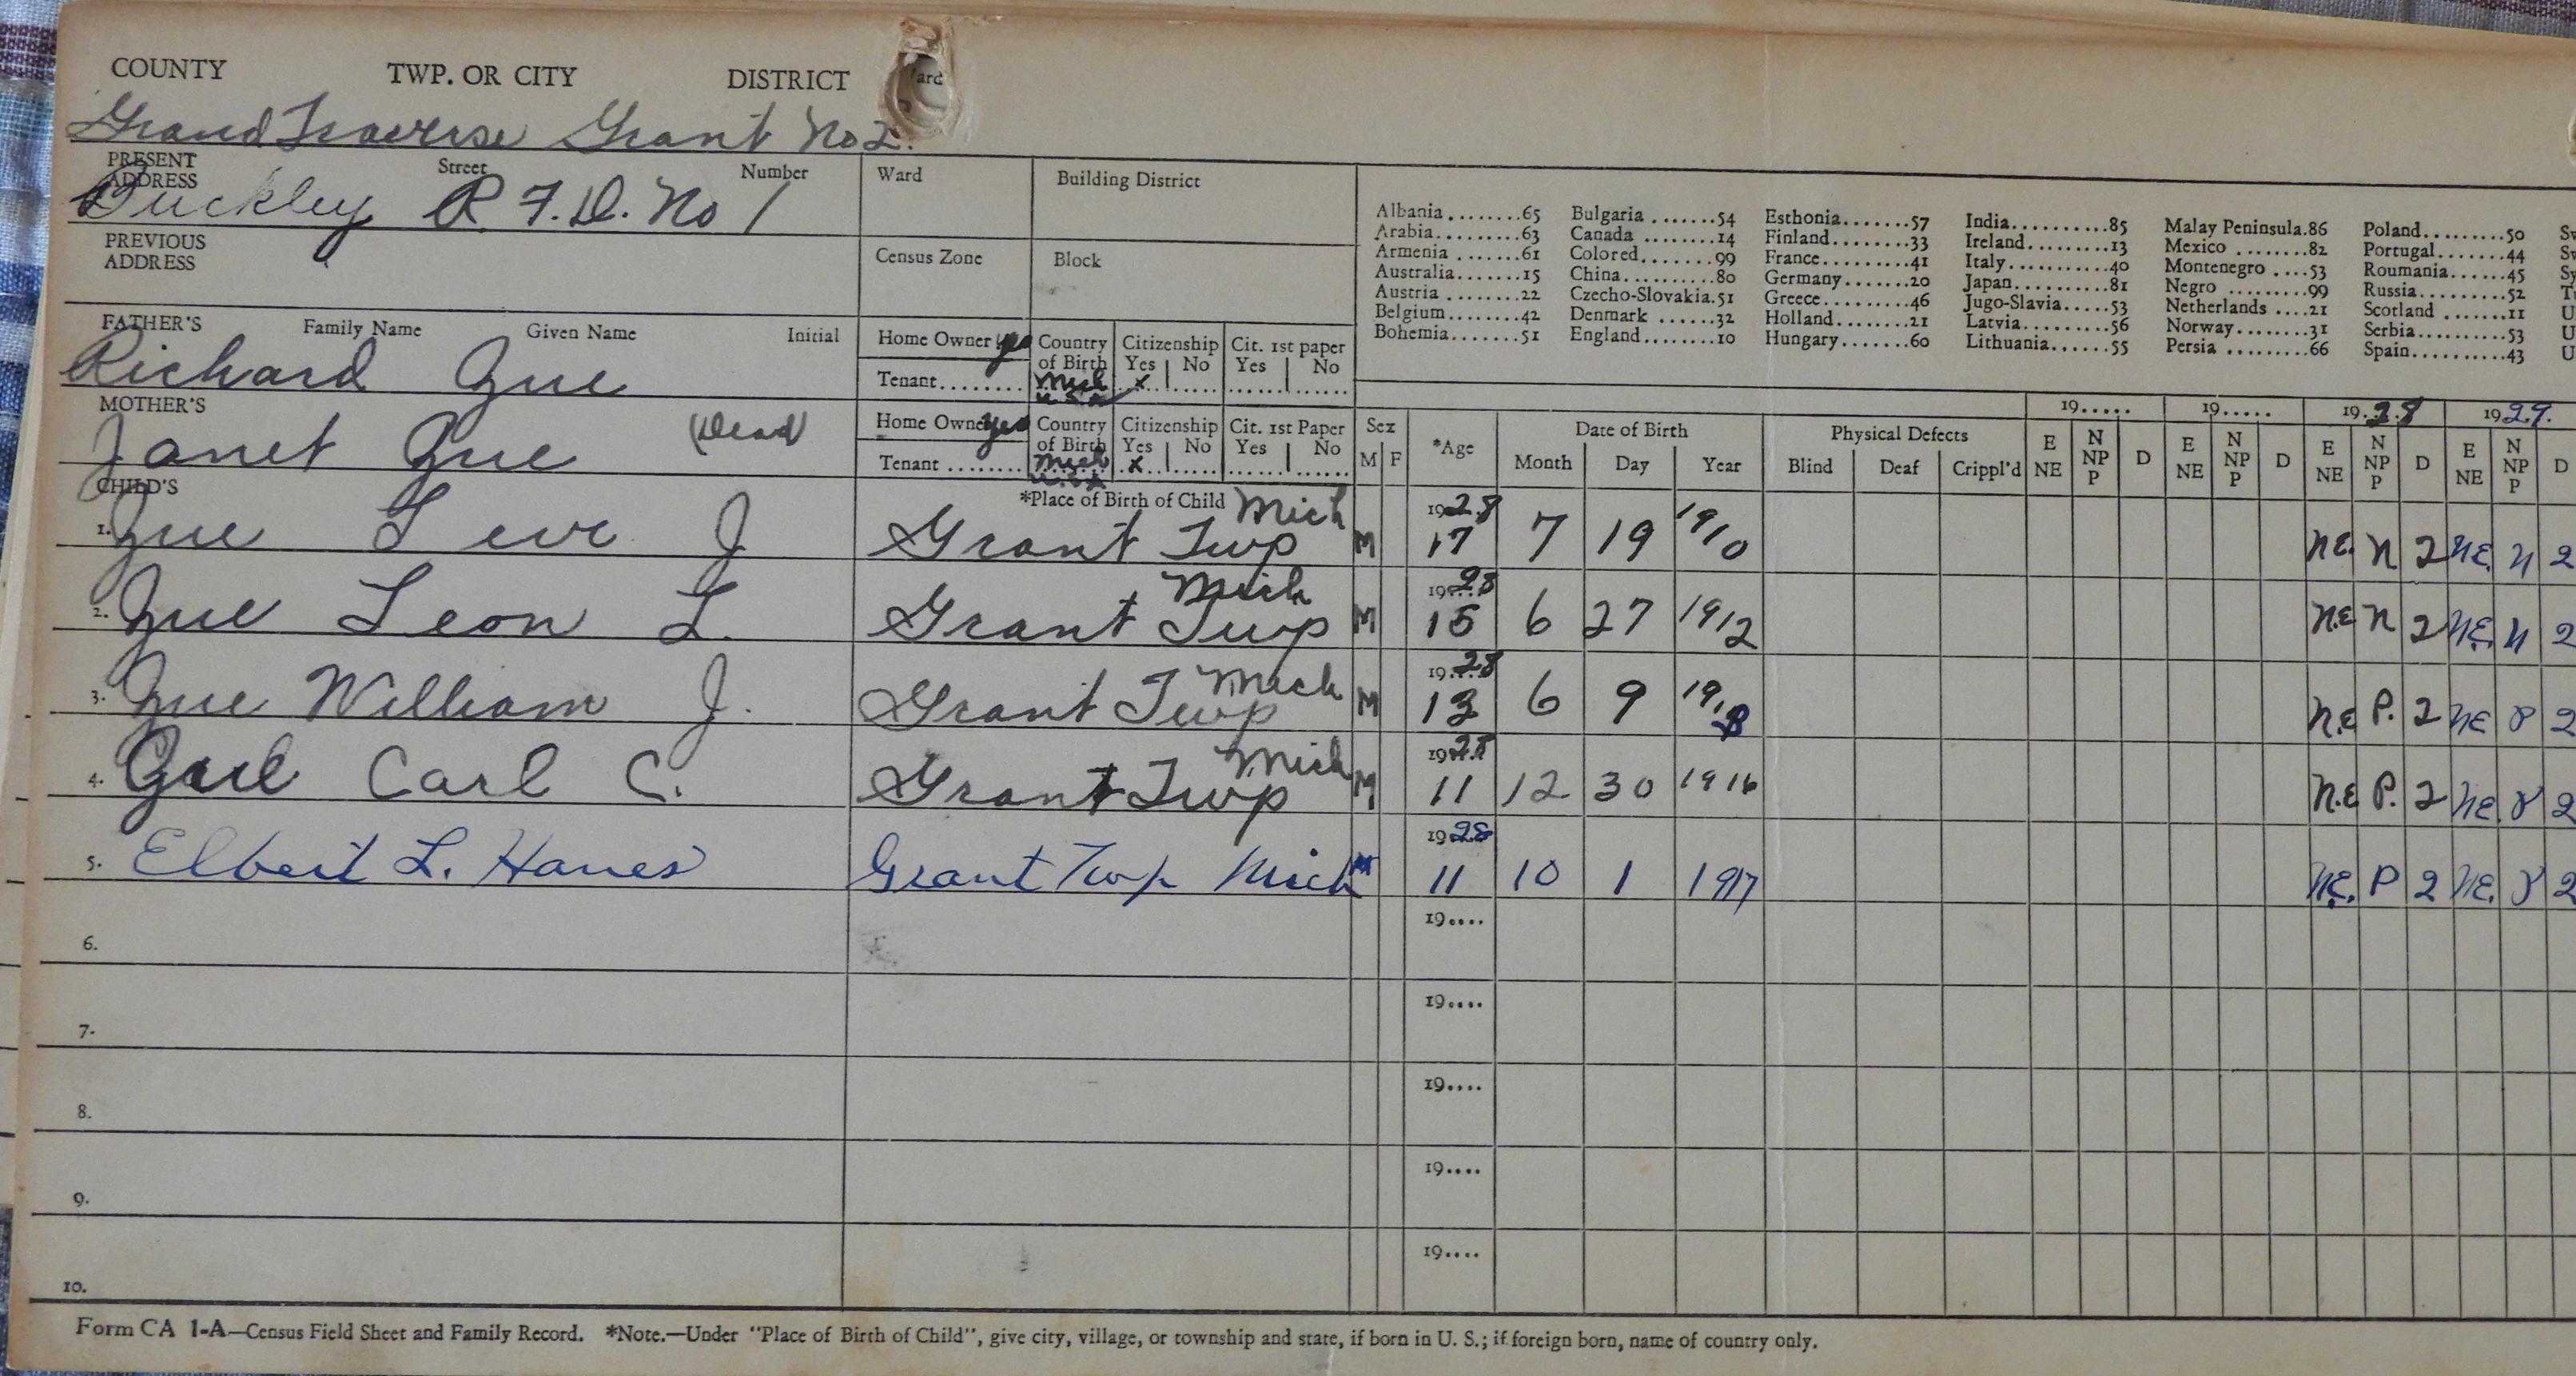 COUNTY TWP. OR CITY DISTRICT ard
Grand Traverse Grant No 2.
PRESENT ADDRESS Street Number Ward Building District
Buckley R. F. D. No 1
Albania........65 Bulgaria.......54 Esthonia.......57 India..........85 Malay Peninsula.86 Poland.........50
Arabia.........63 Canada ........14 Finland........33 Ireland........13 Mexico ........82 Portugal.......44
Armenia .......61 Colored........99 France.........41 Italy..........40 Montenegro ....53 Roumania......45
Australia......15 China..........80 Germany........20 Japan..........81 Negro .........99 Russia.........52
Austria .......22 Czecho-Slovakia.51 Greece.........46 Jugo-Slavia.....53 Netherlands ....21 Scotland .......11
Belgium........42 Denmark ......32 Holland........21 Latvia.........56 Norway........31 Serbia.........53
Bohemia.......51 England........10 Hungary.......60 Lithuania......55 Persia .........66 Spain..........43
PREVIOUS ADDRESS Census Zone Block
FATHER'S Family Name Given Name Initial Home Owner yes Country of Birth Citizenship Yes No Cit. 1st paper Yes No
Richard Gue Tenant........ Mich U.S.A x
MOTHER'S Home Owner yes Country of Birth Citizenship Yes No Cit. 1st Paper Yes No
Janet Gue (Dead) Tenant ........ Mich U.S.A x
Sex M F *Age Date of Birth Month Day Year Physical Defects Blind Deaf Crippl'd
19..... 19..... 1928 1929.
E NE N NP P D E NE N NP P D E NE N NP P D E NE N NP P D
CHILD'S *Place of Birth of Child
1. Gue J Grant Twp Mich M 1928 17 7 19 1910 NE. N 2 NE. N 2
2. Gue Leon L. Grant Twp Mich M 1928 15 6 27 1912 N.E N 2 NE. N 2
3. Gue William J. Grant Twp Mich M 1928 13 6 9 N.E P. 2 NE P 2
4. Carl C. Grant Twp Mich M 1928 11 12 30 1916 N.E P. 2 NE. P 2
5. Elbert L. Hanes Grant Twp Mich M 1928 11 10 1 1917 NE. P 2 NE. P 2
6. 19....
7. 19....
8. 19....
9. 19....
10. 19....
Form CA 1-A—Census Field Sheet and Family Record. *Note.—Under "Place of Birth of Child", give city, village, or township and state, if born in U. S.; if foreign born, name of country only.